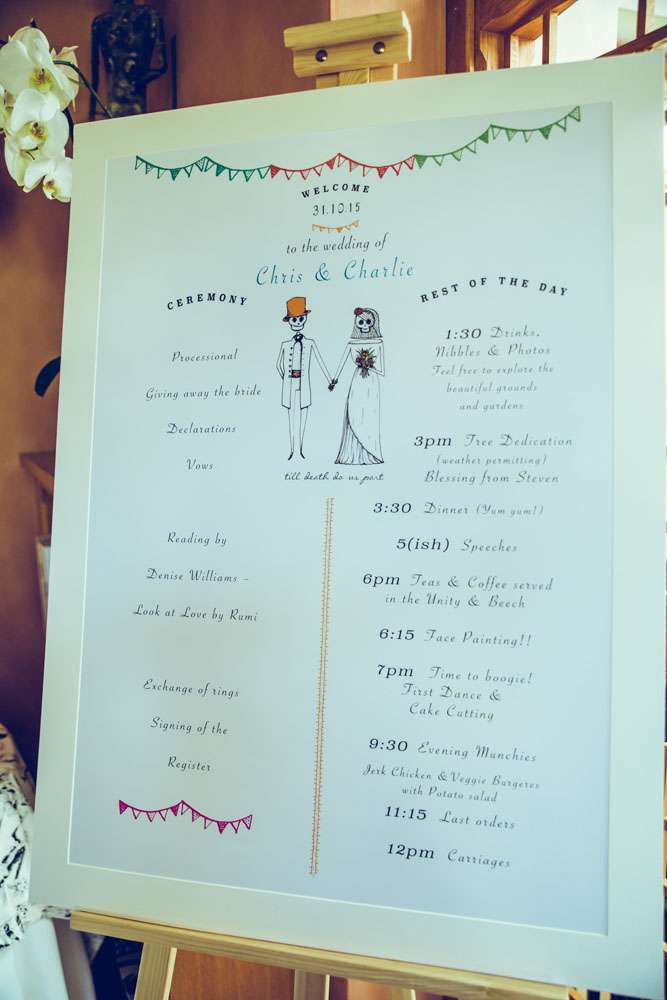 WELCOME
31.10.15
to the wedding of
Chris & Charlie
CEREMONY
Processional
Giving away the bride
Declarations
Vows
till death do us part
Reading by
Denise Williams –
Look at Love by Rumi
Exchange of rings
Signing of the
Register
REST OF THE DAY
1:30 Drinks,
Nibbles & Photos
Feel free to explore the
beautiful grounds
and gardens
3pm Tree Dedication
(weather permitting)
Blessing from Steven
3:30 Dinner (Yum yum!)
5(ish) Speeches
6pm Teas & Coffee served
in the Unity & Beech
6:15 Face Painting!!
7pm Time to boogie!
First Dance &
Cake Cutting
9:30 Evening Munchies
Jerk Chicken & Veggie Burgeres
with Potato salad
11:15 Last orders
12pm Carriages